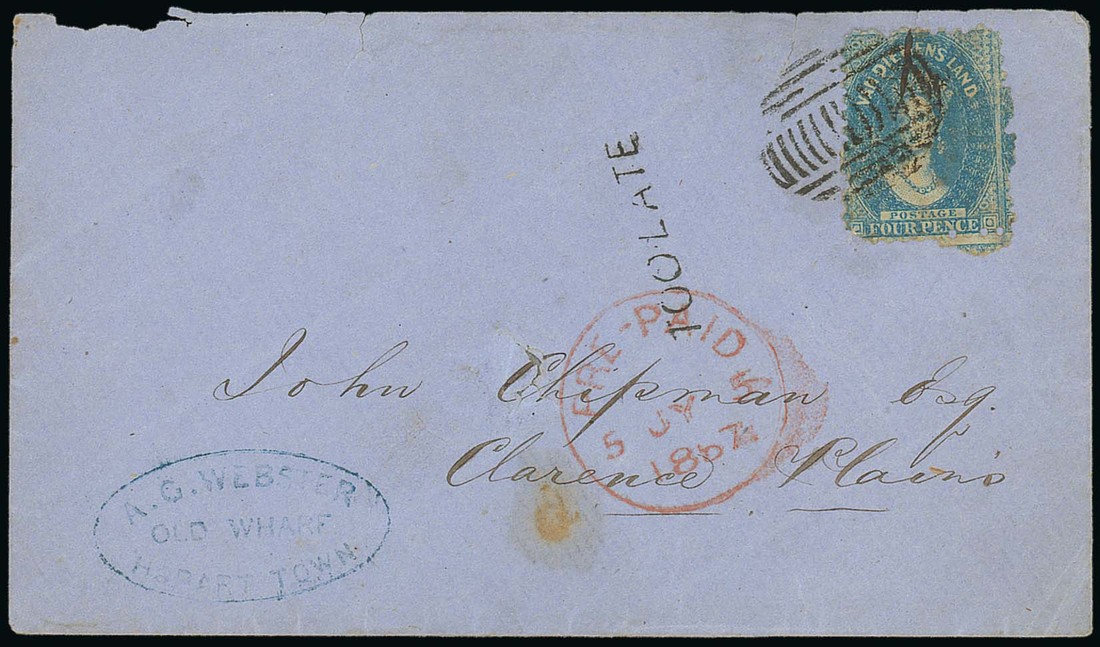 VAN DIEMENS LAND
POSTAGE
FOUR PENCE
TOO LATE
PRE-PAID
5 JY
1867
John Chipman Esq.
Clarence Plains
A. G. WEBSTER
OLD WHARF
HOBART TOWN